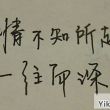 情不知所起
一往而深
Yik